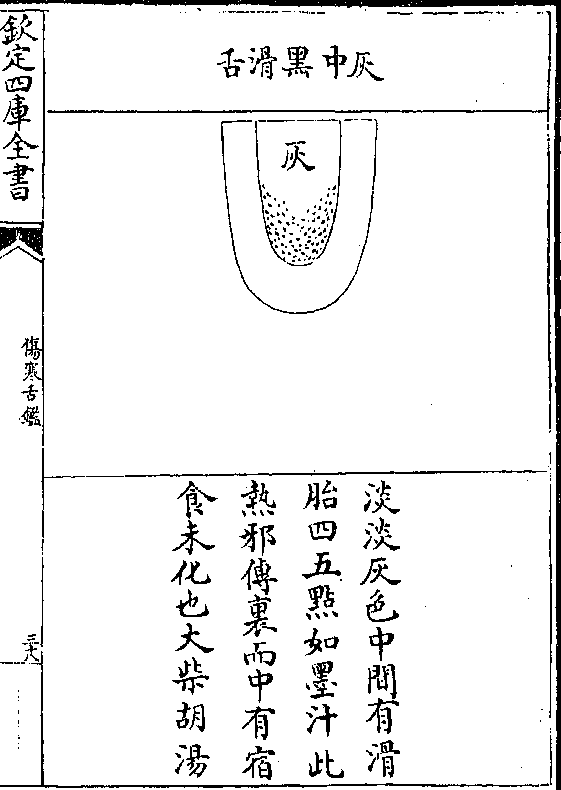 灰中黑滑舌
灰
淡淡灰色中間有滑
胎四五點如墨汁此
熱邪傳裏而中有宿
食未化也大柴胡湯
欽定四庫全書
傷寒舌鑑